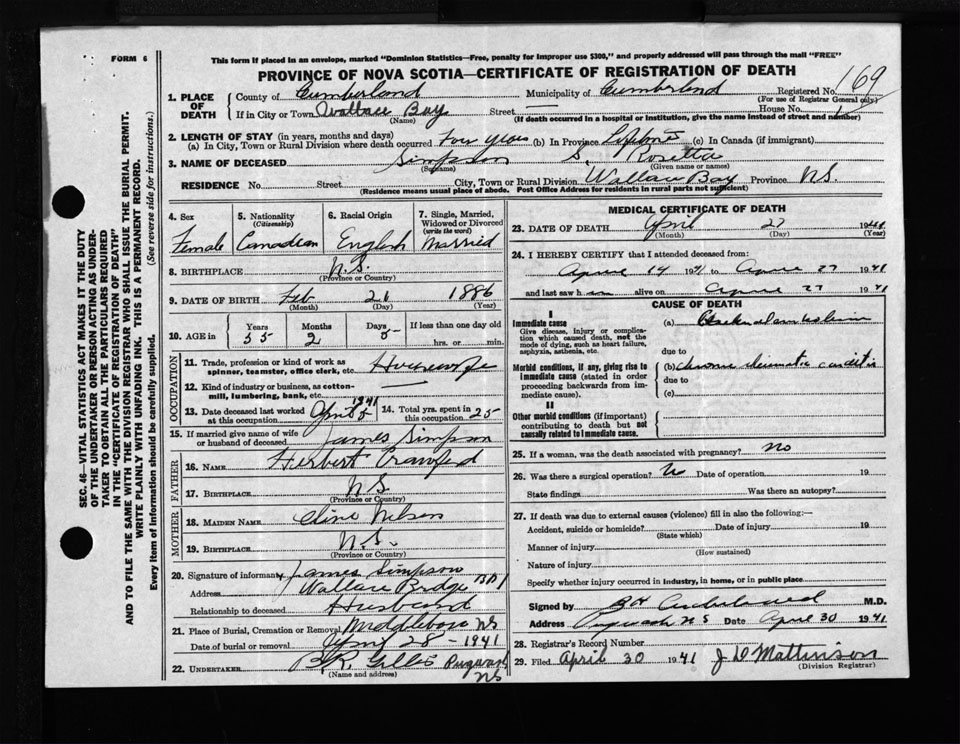 FORM 6
This form if placed in an envelope, marked "Dominion Statistics—Free, penalty for improper use $300," and properly addressed will pass through the mail "FREE"
PROVINCE OF NOVA SCOTIA—CERTIFICATE OF REGISTRATION OF DEATH
Registered No. 169
(For use of Registrar General only)
1. PLACE OF DEATH
County of Cumberland Municipality of Cumberland
If in City or Town Wallace Bay Street — House No.
(Name) (If death occurred in a hospital or institution, give the name instead of street and number)
2. LENGTH OF STAY (in years, months and days)
(a) In City, Town or Rural Division where death occurred Four years (b) In Province Lifetime (c) In Canada (if immigrant)
3. NAME OF DECEASED Simpson S. Rosetta
(Surname) (Given name or names)
RESIDENCE No. Street City, Town or Rural Division Wallace Bay Province N.S.
(Residence means usual place of abode. Post Office Address for residents in rural parts not sufficient)
4. Sex
Female
5. Nationality
(Citizenship)
Canadian
6. Racial Origin
English
7. Single, Married, Widowed or Divorced
(write the word)
Married
8. BIRTHPLACE N.S.
(Province or Country)
9. DATE OF BIRTH Feb 26 1886
(Month) (Day) (Year)
10. AGE in
Years 55
Months 2
Days
If less than one day old
hrs. or min.
OCCUPATION
11. Trade, profession or kind of work as spinner, teamster, office clerk, etc. Housewife
12. Kind of industry or business, as cotton-mill, lumbering, bank, etc. —
13. Date deceased last worked at this occupation April 5 1941
14. Total yrs. spent in this occupation 25
15. If married give name of wife or husband of deceased James Simpson
FATHER
16. NAME Herbert
17. BIRTHPLACE N.S.
(Province or Country)
MOTHER
18. MAIDEN NAME Nelson
19. BIRTHPLACE N.S.
(Province or Country)
20. Signature of informant James Simpson
Address Wallace Bridge
Relationship to deceased Husband
21. Place of Burial, Cremation or Removal Middleboro NS
Date of burial or removal April 28 - 1941
22. UNDERTAKER B.K. Gillis Pugwash NS
(Name and address)
MEDICAL CERTIFICATE OF DEATH
23. DATE OF DEATH April 27 1941
(Month) (Day) (Year)
24. I HEREBY CERTIFY that I attended deceased from:
April 14 1941 to April 27 1941
and last saw h alive on April 27 1941
CAUSE OF DEATH
I
Immediate cause
Give disease, injury or complication which caused death, not the mode of dying, such as heart failure, asphyxia, asthenia, etc.
(a)
due to
Morbid conditions, if any, giving rise to immediate cause (stated in order proceeding backwards from immediate cause).
(b) chronic rheumatic carditis
due to
(c)
II
Other morbid conditions (if important) contributing to death but not causally related to immediate cause.
25. If a woman, was the death associated with pregnancy? no
26. Was there a surgical operation? No Date of operation 19
State findings Was there an autopsy?
27. If death was due to external causes (violence) fill in also the following:—
Accident, suicide or homicide? Date of injury 19
(State which)
Manner of injury
(How sustained)
Nature of injury
Specify whether injury occurred in industry, in home, or in public place
Signed by M.D.
Address Pugwash N S Date April 30 1941
28. Registrar's Record Number
29. Filed April 30 1941 J D Mattinson
(Division Registrar)
SEC. 46—VITAL STATISTICS ACT MAKES IT THE DUTY
OF THE UNDERTAKER OR PERSON ACTING AS UNDER-
TAKER TO OBTAIN ALL THE PARTICULARS REQUIRED
IN THE "CERTIFICATE OF REGISTRATION OF DEATH"
AND TO FILE THE SAME WITH THE DIVISION REGISTRAR WHO SHALL ISSUE THE BURIAL PERMIT.
WRITE PLAINLY WITH UNFADING INK. THIS IS A PERMANENT RECORD.
Every item of information should be carefully supplied. (See reverse side for instructions.)